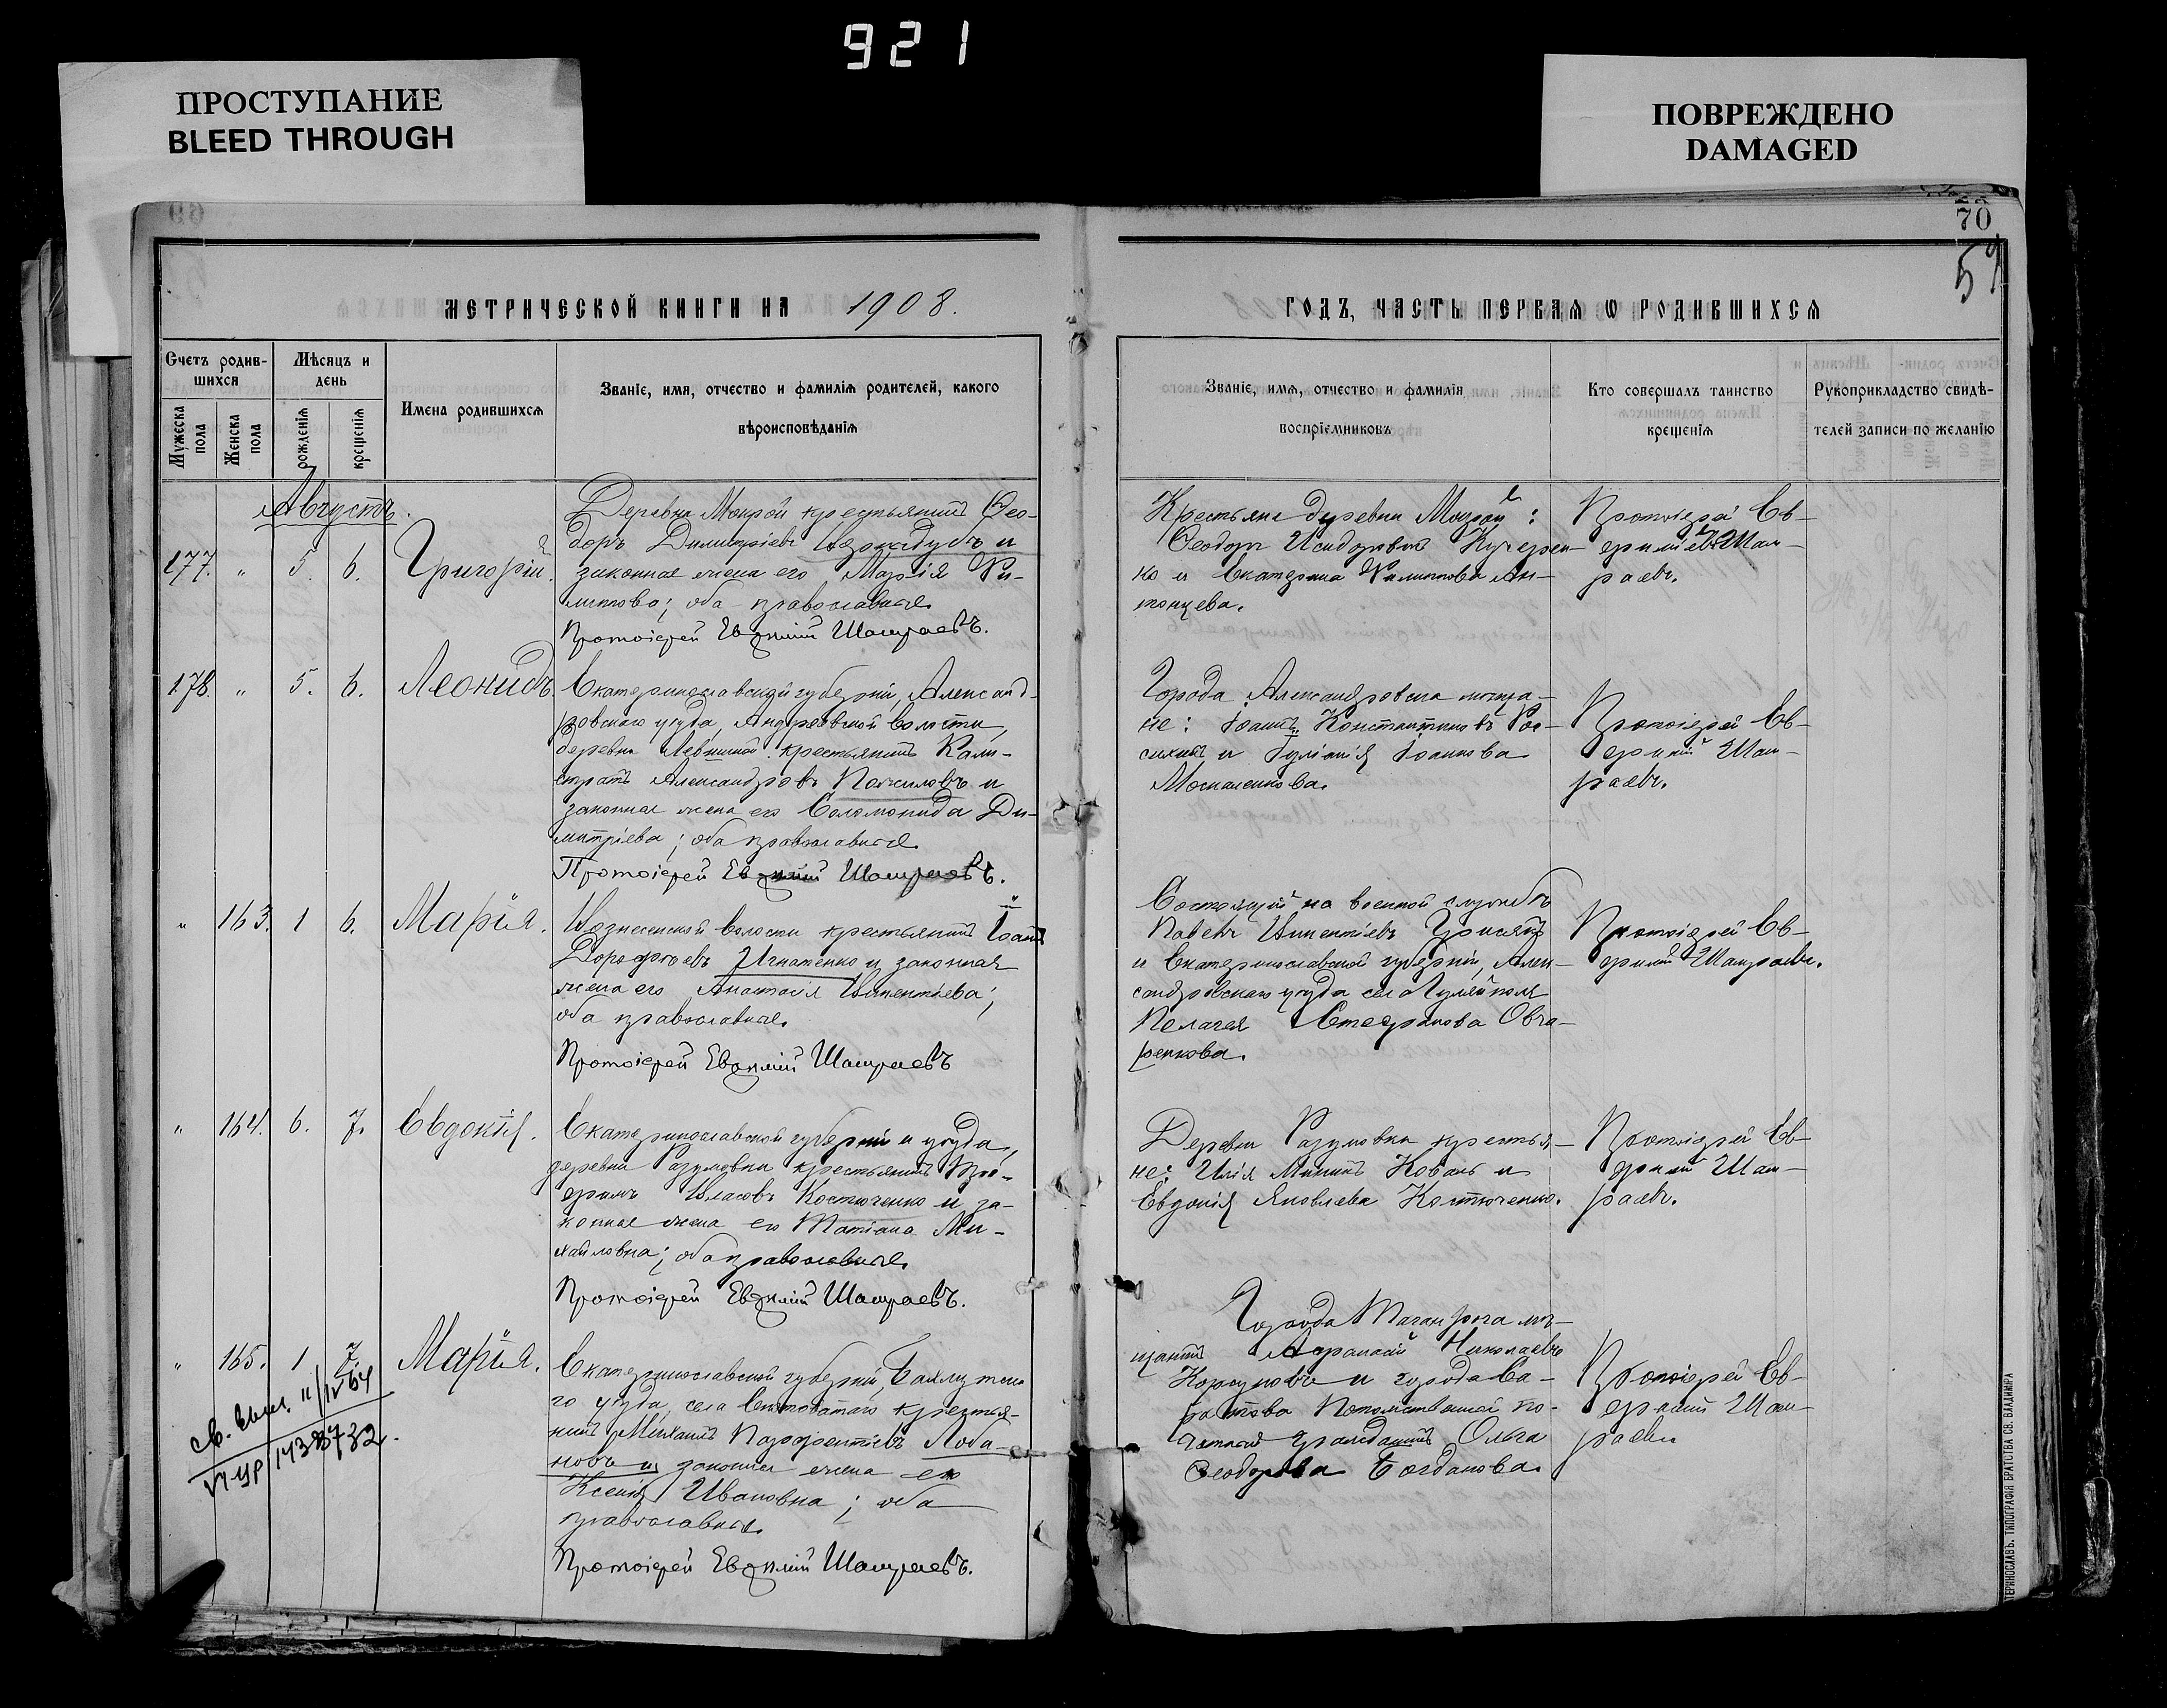 921
ПРОСТУПАНИЕ
BLEED THROUGH
ПОВРЕЖДЕНО
DAMAGED
70
59
МЕТРИЧЕСКОЙ КНИГИ НА 1908.
ГОДЪ, ЧАСТЬ ПЕРВАЯ Ѡ РОДИВШИХСЯ
Счетъ родив-
шихся
Мѣсяцъ и
день
Имена родившихся
Званіе, имя, отчество и фамилія родителей, какого
вѣроисповѣданія
Мужеска
пола
Женска
пола
рожденія
крещенія
Званіе, имя, отчество и фамилія
воспріемниковъ
Кто совершалъ таинство
крещенія
Рукоприкладство свидѣ-
телей записи по желанію
Августъ.
177. " 5. 6. Григорій.
Деревни Мокрой крестьянинъ Ѳео-
доръ Димитріевъ и
законная жена его Марія Фи-
липпова; оба православные.
Протоіерей Евѳимій Шамраевъ.
Крестьяне деревни Мокрой:
Ѳеодоръ Исидоровъ Кучерен-
ко и Екатерина Филиппова Ан-
тонцева.
Протоіерей Ев-
ѳимій Шам-
раевъ.
178. " 5. 6. Леонидъ.
Екатеринославской губерніи, Александ-
ровскаго уѣзда, Андреевской волости,
деревни Левшиной крестьянинъ Кали-
стратъ Александровъ и
законная жена его Соломонида Ди-
митріева; оба православные.
Протоіерей Евѳимій Шамраевъ.
Города Александровска мѣща-
не: Іоаннъ Константиновъ Рос-
и Іуліанія Іоаннова
Москаленкова.
Протоіерей Ев-
ѳимій Шам-
раевъ.
" 163. 1 6. Марія.
Вознесенской волости крестьянинъ Іоаннъ
Дороѳеевъ Игнатенко и законная
жена его Анастасія Викентіева;
оба православные.
Протоіерей Евѳимій Шамраевъ
Состоящій на военной службѣ
Павелъ Викентіевъ
и Екатеринославской губерніи, Алек-
сандровскаго уѣзда села Гуляйполя
Пелагея Стефанова Овча-
ренкова.
Протоіерей Ев-
ѳимій Шамраевъ.
" 164. 6. 7. Евдокія.
Екатеринославской губерніи и уѣзда,
деревни Разумовки крестьянинъ
Власовъ Костюченко и за-
конная жена его Татіана Ми-
хайловна; оба православные.
Протоіерей Евѳимій Шамраевъ.
Деревни Разумовки крестья-
не: Илія Мининъ Коваль и
Евдокія Яковлева Костюченко.
Протоіерей Ев-
ѳимій Шам-
раевъ.
" 165. 1 7. Марія.
Екатеринославской губерніи, Бахмутска-
го уѣзда, села крестья-
нинъ Михаилъ Парѳентіевъ Лоба-
новъ и законная жена его
Ксенія Ивановна; оба
православные.
Протоіерей Евѳимій Шамраевъ.
Города Таганрога мѣ-
щанинъ Аѳанасій Николаевъ
Корсуновъ и города Са-
ратова Потомственной по-
четной гражданинъ Ольга
Ѳеодорова Богданова.
Протоіерей Ев-
ѳимій Шам-
раевъ
св. выд. 11/IV 64
VI-УР 1438732.
ТЕРИНОСЛАВЪ. ТИПОГРАФІЯ БРАТСТВА СВ. ВЛАДИМІРА